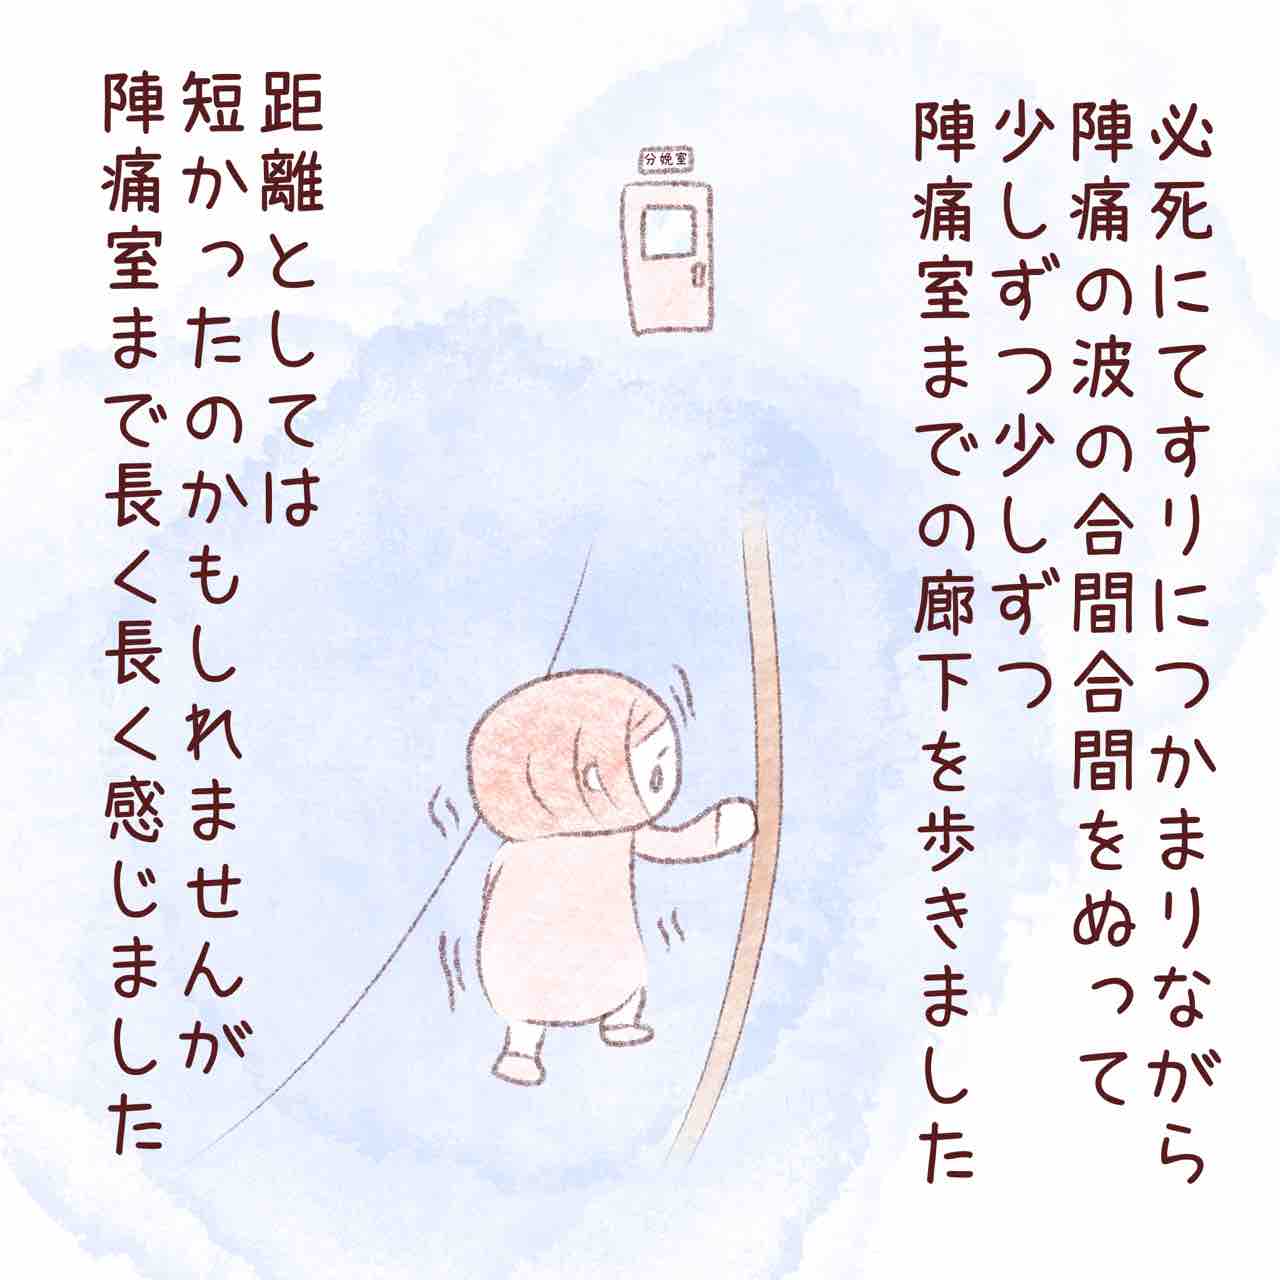 必死にてすりにつかまりながら
陣痛の波の合間合間をぬって
少しずつ少しずつ
陣痛室までの廊下を歩きました
分娩室
距離としては
短かったのかもしれませんが
陣痛室まで長く長く感じました